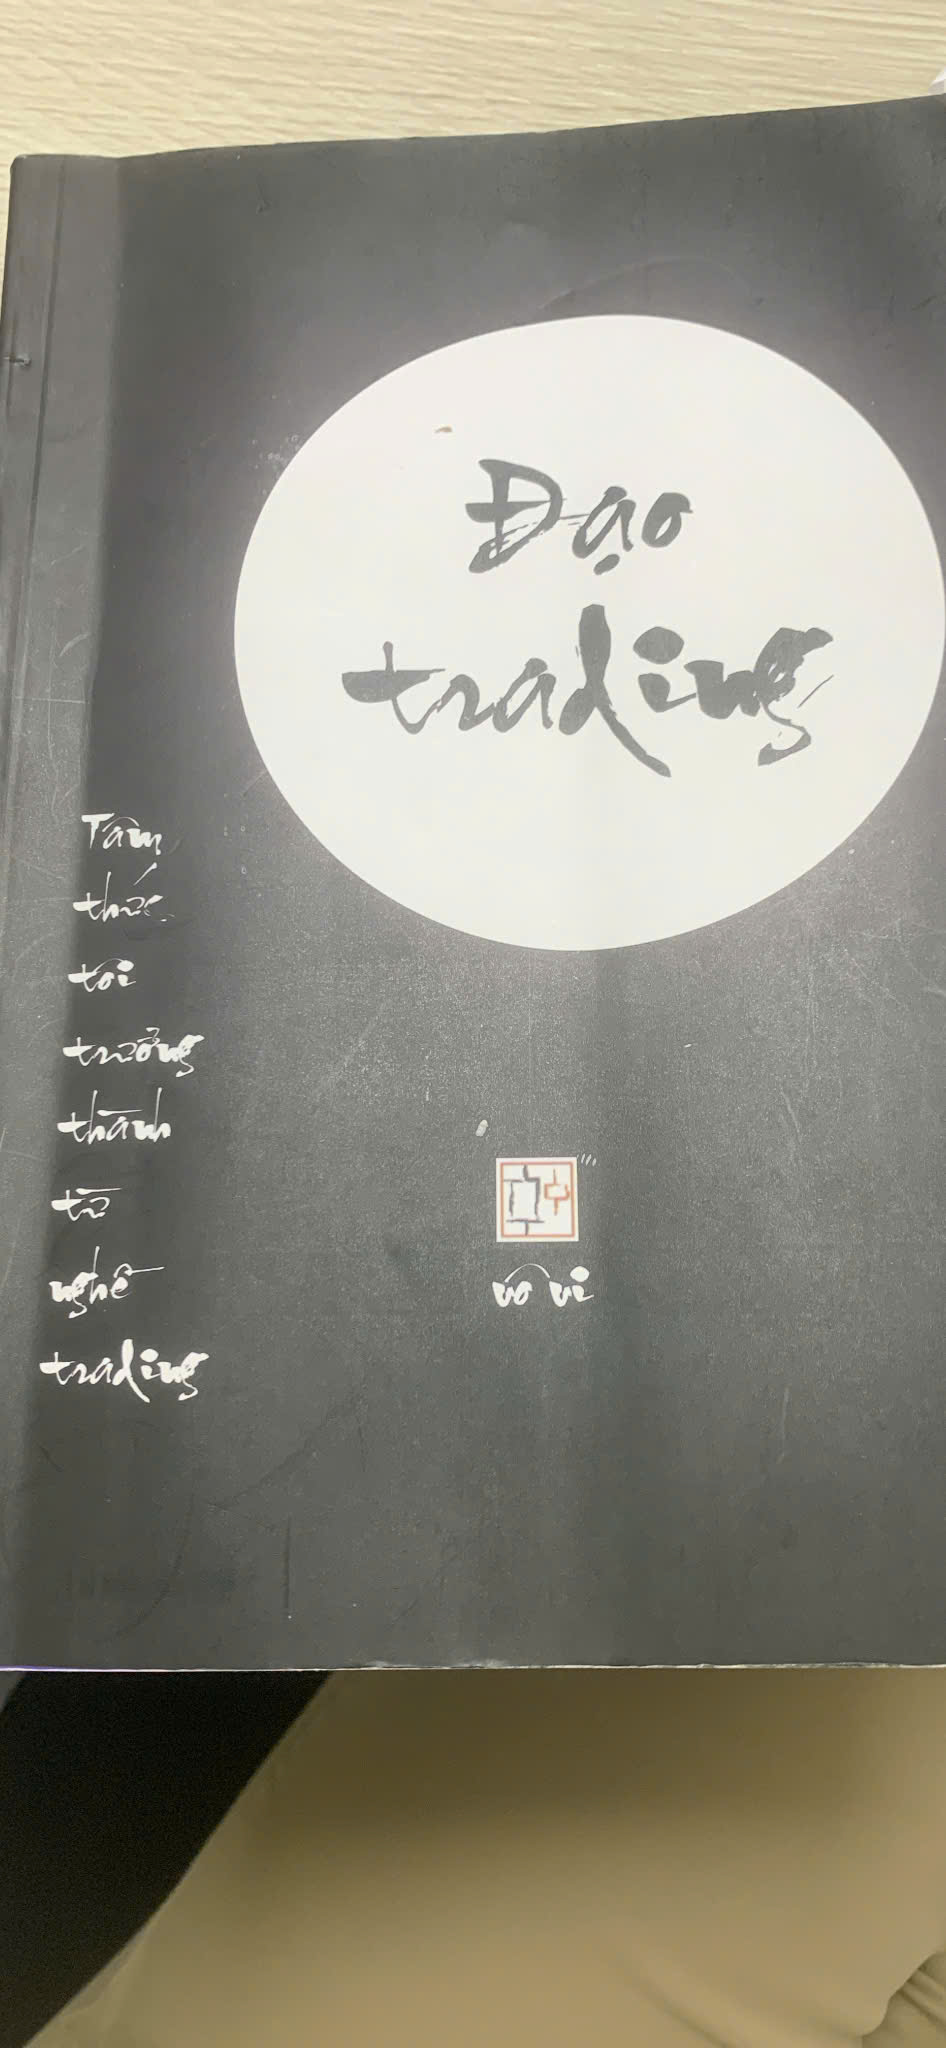 Đạo
trading
Tâm
thức
tôi
trưởng
thành
từ
nghề
trading
vô vi